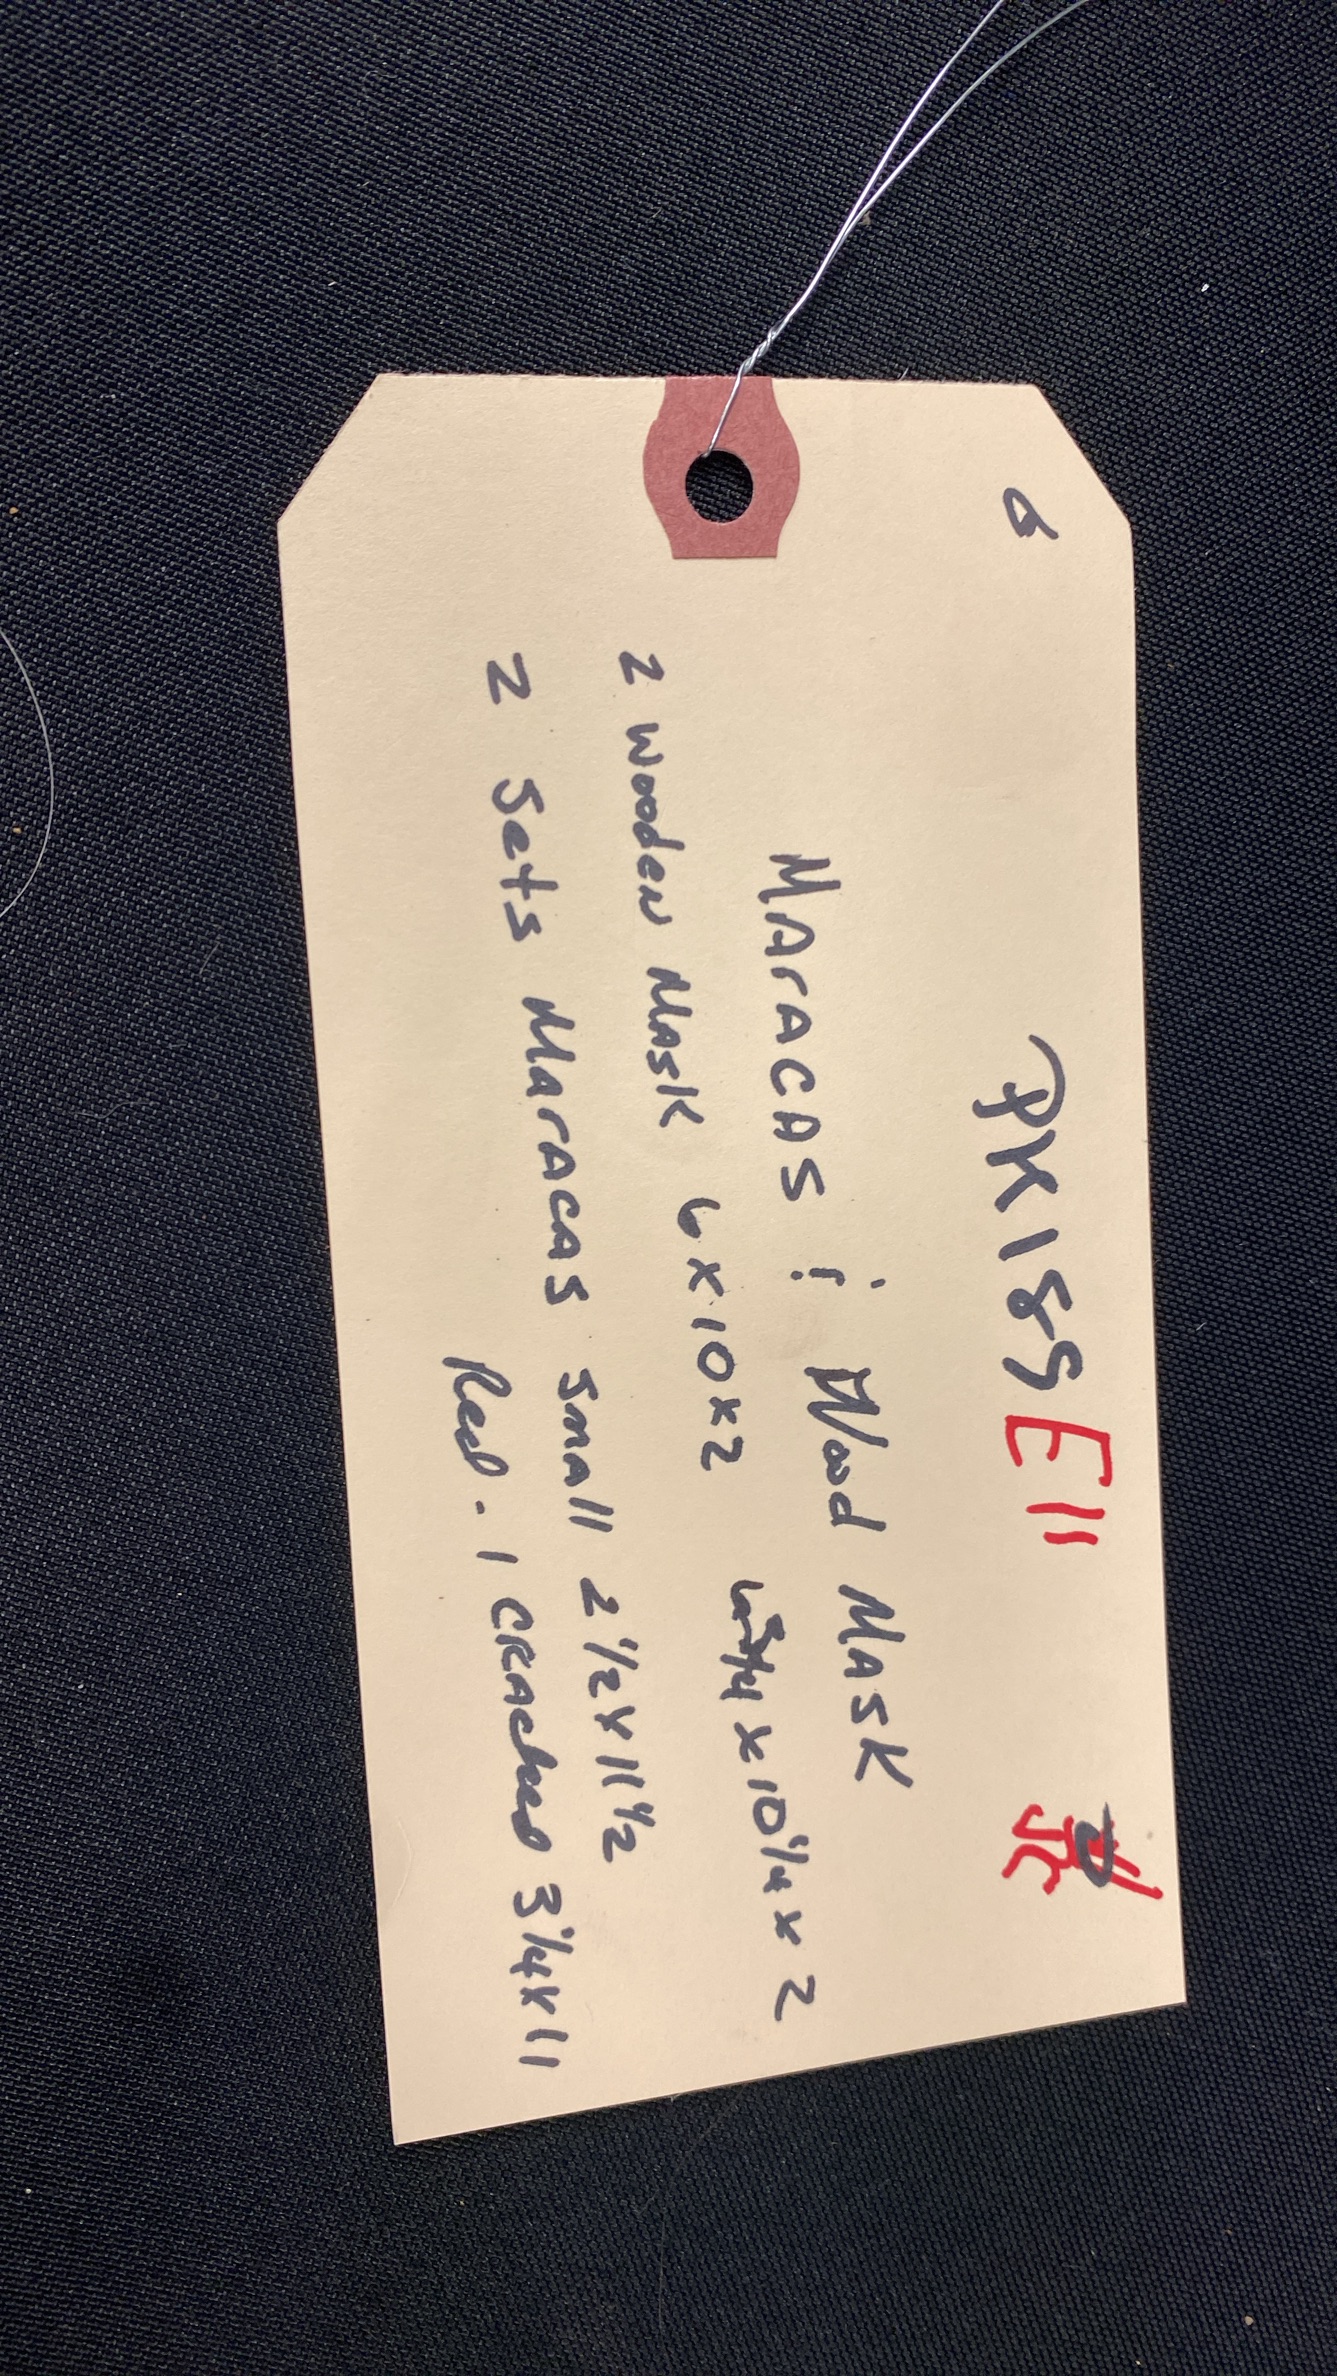 6
PK189 E11 JC
MArACAS & Wood MASK
2 wooden MASK 6x10x2 6 3/4 x 10 1/4 x 2
2 Sets MArACAS small 2 1/2 x 11 1/2
Red - 1 CRACked 3 1/4 x 11